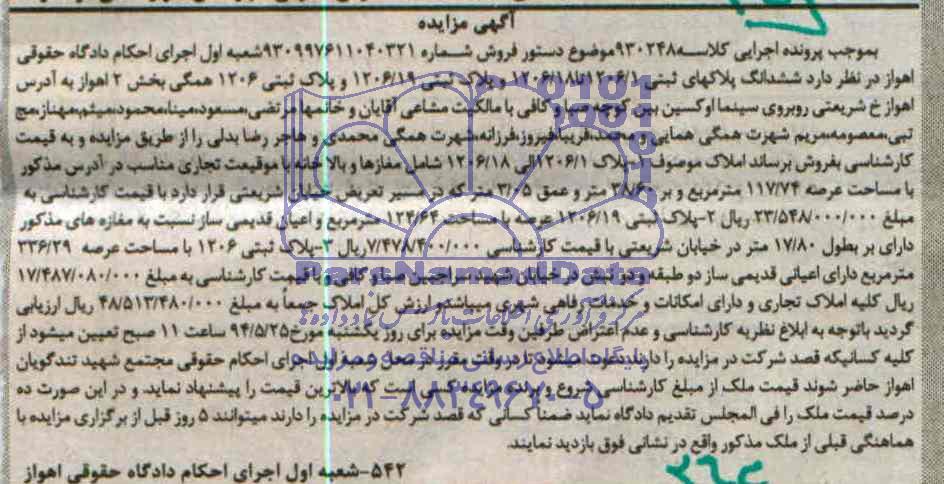 آگهی مزایده
بموجب پرونده اجرایی کلاسه ۹۳۰۲۴۸موضوع دستور فروش شماره ۹۳۰۹۹۷۶۱۱۰۴۰۳۲۱شعبه اول اجرای احکام دادگاه حقوقی
اهواز در نظر دارد ششدانگ پلاکهای ثبتی ۱۲۰۶/۱تا۱۲۰۶/۱۸ و پلاک ثبتی ۱۲۰۶/۱۹ و پلاک ثبتی ۱۲۰۶ همگی بخش ۲ اهواز به آدرس
اهواز خ شریعتی روبروی سینما اوکسین بین کوچه صبا و کافی با مالکیت مشاعی آقایان و خانمها مرتضی،مسعود،مینا،محمود،میثم،مهناز،مج
تبی،معصومه،مریم شهرت همگی همایی و محمد،فریبا،فیروز،فرزانه،شهرت همگی محمدی و هاجر رضا بدلی را از طریق مزایده و به قیمت
کارشناسی بفروش برساند املاک موصوف ۱-پلاک ۱۲۰۶/۱الی ۱۲۰۶/۱۸ شامل مغازها و بالا خانه با موقیعت تجاری مناسب در آدرس مذکور
با مساحت عرصه ۱۱۷/۷۴ مترمربع و بر ۳۸/۶۰ متر و عمق ۳/۰۵ متر که در مسیر تعریض خیابان شریعتی قرار دارد با قیمت کارشناسی به
مبلغ ۲۳/۵۴۸/۰۰۰/۰۰۰ ریال ۲-پلاک ثبتی ۱۲۰۶/۱۹ عرصه با مساحت ۱۲۴/۶۴ مترمربع و اعیان قدیمی ساز نسبت به مغازه های مذکور
دارای بر بطول ۱۷/۸۰ متر در خیابان شریعتی با قیمت کارشناسی ۷/۴۷۸/۴۰۰/۰۰۰ریال ۳-پلاک ثبتی ۱۲۰۶ با مساحت عرصه ۳۳۶/۲۹
مترمربع دارای اعیانی قدیمی ساز دو طبقه و دو نبش در خیابان شهید میراجمین صبا و کافی و با قیمت کارشناسی به مبلغ ۱۷/۴۸۷/۰۸۰/۰۰۰
ریال کلیه املاک تجاری و دارای امکانات و خدمات رفاهی شهری میباشد و ارزش کل املاک جمعاً به مبلغ ۴۸/۵۱۳/۴۸۰/۰۰۰ ریال ارزیابی
گردید باتوجه به ابلاغ نظریه کارشناسی و عدم اعتراض طرفین وقت مزایده برای روز یکشنبه مورخ۹۴/۵/۲۵ ساعت ۱۱ صبح تعیین میشود از
کلیه کسانیکه قصد شرکت در مزایده را دارند دعوت میشود تا در وقت مقرر در محل شعبه اول اجرای احکام حقوقی مجتمع شهید تندگویان
اهواز حاضر شوند قیمت ملک از مبلغ کارشناسی شروع و برنده مزایده کسی است که بالاترین قیمت را پیشنهاد نماید و در این صورت ده
درصد قیمت ملک را فی المجلس تقدیم دادگاه نماید ضمناً کسانی که قصد شرکت در مزایده را دارند میتوانند ۵ روز قبل از برگزاری مزایده با
هماهنگی قبلی از ملک مذکور واقع در نشانی فوق بازدید نمایند.
۵۴۲-شعبه اول اجرای احکام دادگاه حقوقی اهواز
ParsNamadData
پایگاه اطلاع رسانی مناقصه و مزایده
۰۲۱-۸۸۳۴۹۶۷۰-۵